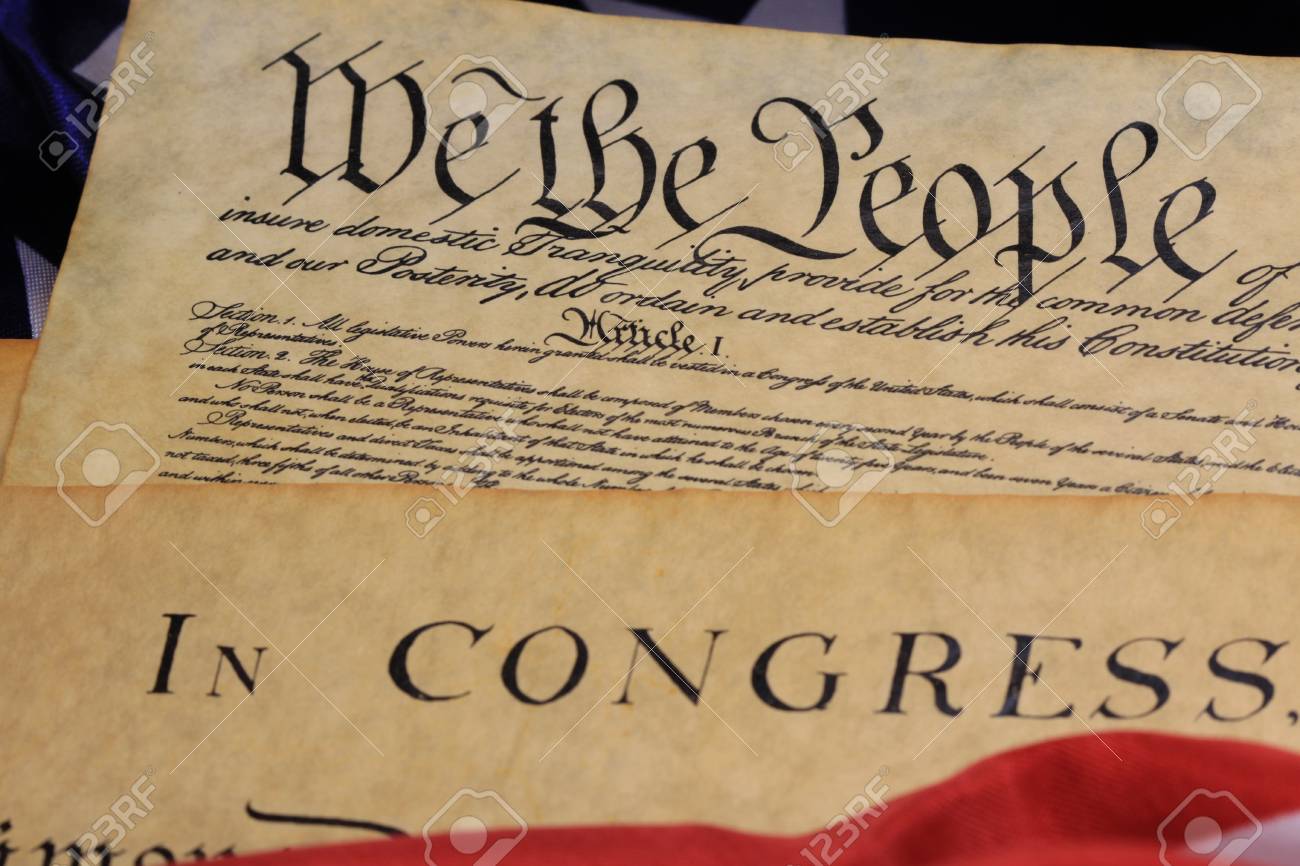 We the People of
insure domestic Tranquility, provide for the common defen
and our Posterity, do ordain and establish this Constitution
Article I.
Section. 1. All legislative Powers herein granted shall be vested in a Congress of the United States, which shall consist of a Senate and Hous
of Representatives.
Section. 2. The House of Representatives shall be composed of Members chosen every second Year by the People of the several States, and the Electo
in each State shall have the Qualifications requisite for Electors of the most numerous Branch of the State Legislature.
No Person shall be a Representative who shall not have attained to the Age of twenty five Years, and been seven Years a Citizen
and who shall not, when elected, be an Inhabitant of that State in which he shall be chosen.
Representatives and direct Taxes shall be apportioned among the several States which
Numbers, which shall be determined by adding to the whole Number
not taxed, three fifths of all other Persons.
and within
IN CONGRESS,
123RF